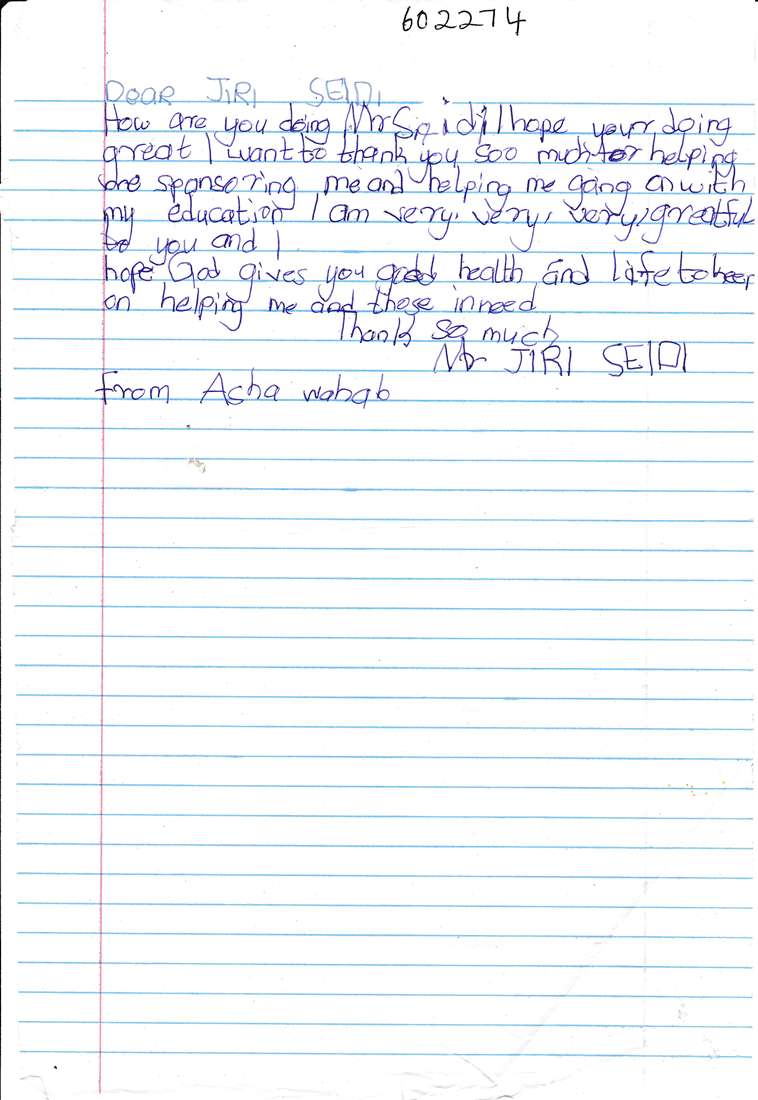 602274
Dear JIRI SEIDI
How are you doing Mr Saidi I hope your doing
great I want to thank you soo much for helping
me sponsoring me and helping me going on with
my education I am very, very, very, greatful
to you and I
hope God gives you good health and life to keep
on helping me and those in need
Thank so much
Mr JIRI SEIDI
From Asha wahab